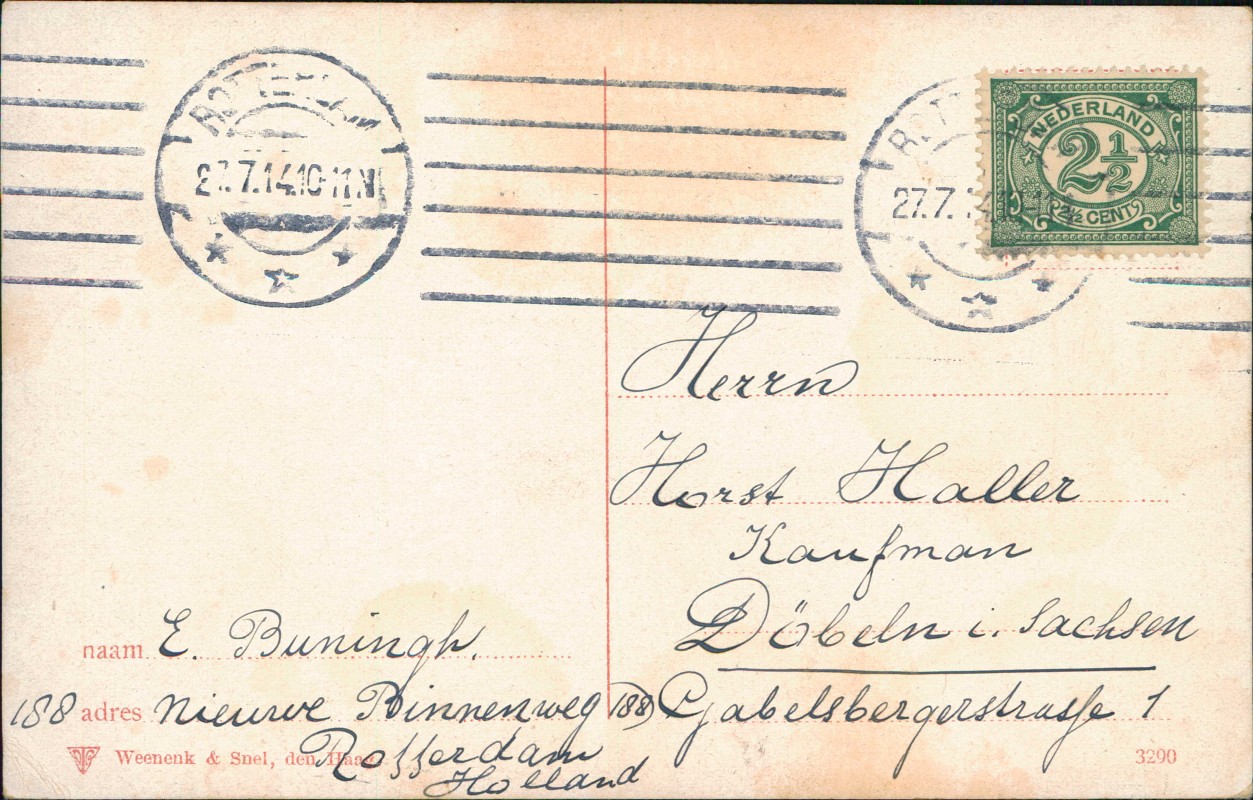 ROTTERDAM
27.7.14.10-11.N
ROTT
27.7.14.10
NEDERLAND
2½
2½ CENT
Herrn
Horst Haller
Kaufman
Döbeln i. Sachsen
Gabelsbergerstrasse 1
naam E. Buningh.
188 adres Nieuwe Binnenweg 188)
Rotterdam
Holland
Weenenk & Snel, den Haag
3290